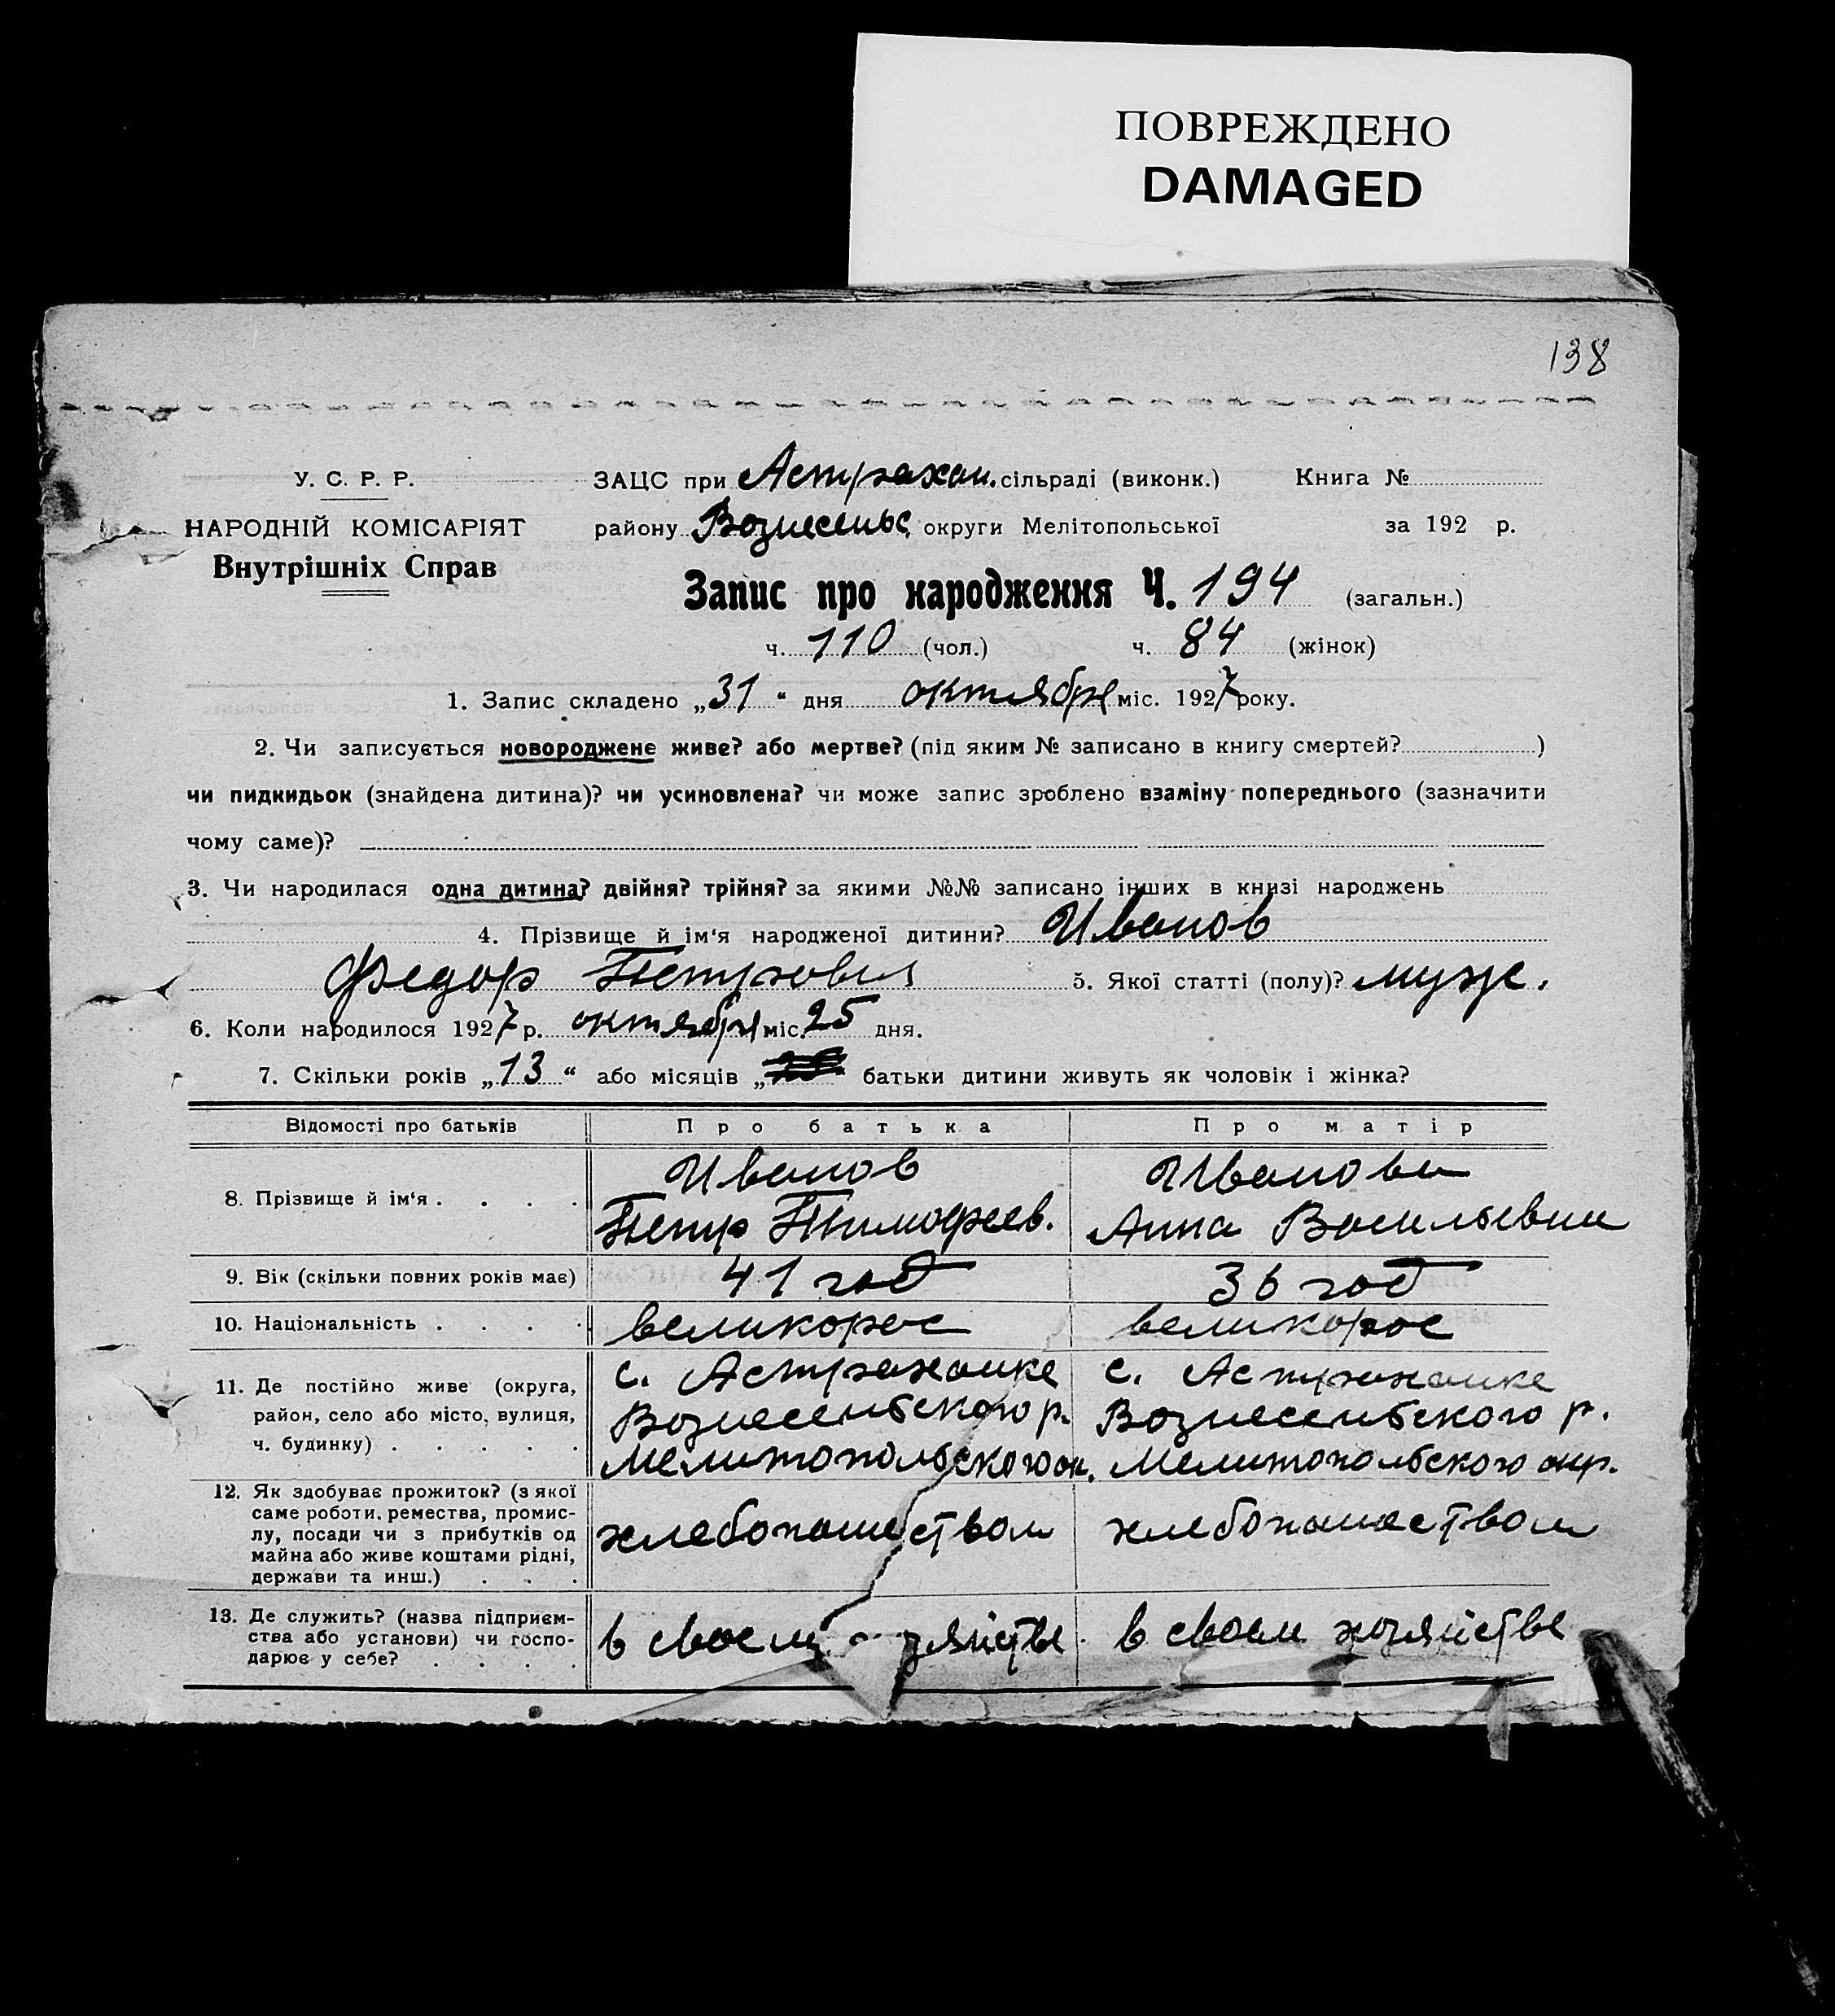 ПОВРЕЖДЕНО
DAMAGED
138
У. С. Р. Р.
НАРОДНІЙ КОМІСАРІЯТ
Внутрішніх Справ
ЗАЦС при Астрахан. сільраді (виконк.) Книга №
району Вознесеньс. округи Мелітопольської за 192 р.
Запис про народження Ч. 194 (загальн.)
ч. 110 (чол.) ч. 84 (жінок)
1. Запис складено „31“ дня октября міс. 1927 року.
2. Чи записується новороджене живе? або мертве? (під яким № записано в книгу смертей? )
чи пидкидьок (знайдена дитина)? чи усиновлена? чи може запис зроблено взаміну попереднього (зазначити
чому саме)?
3. Чи народилася одна дитина? двійня? трійня? за якими №№ записано інших в книзі народжень
4. Прізвище й ім‘я народженої дитини? Иванов
Федор Петрович 5. Якої статті (полу)? муж.
6. Коли народилося 1927 р. октября міс. 25 дня.
7. Скільки років „13“ або місяців „ “ батьки дитини живуть як чоловік і жінка?
Відомості про батьків Про батька Про матір
8. Прізвище й ім‘я . . . . Иванов Иванова
Петр Тимофеев. Анна Васильевна
9. Вік (скільки повних років має) 41 год 36 год
10. Національність . . . . великорос великорос
11. Де постійно живе (округа, с. Астраханке с. Астраханке
район, село або місто, вулиця, Вознесенбского р. Вознесенбского р.
ч. будинку) . . . . . Мелитопольского ок. Мелитопольского окр.
12. Як здобуває прожиток? (з якої
саме роботи, ремества, промис-
лу, посади чи з прибутків од хлебопашеством хлебопашеством
майна або живе коштами рідні,
держави та инш.) . . .
13. Де служить? (назва підприєм-
ства або установи) чи госпо- в своем зяйстве в своем хозяйстве
дарює у себе? . . . .